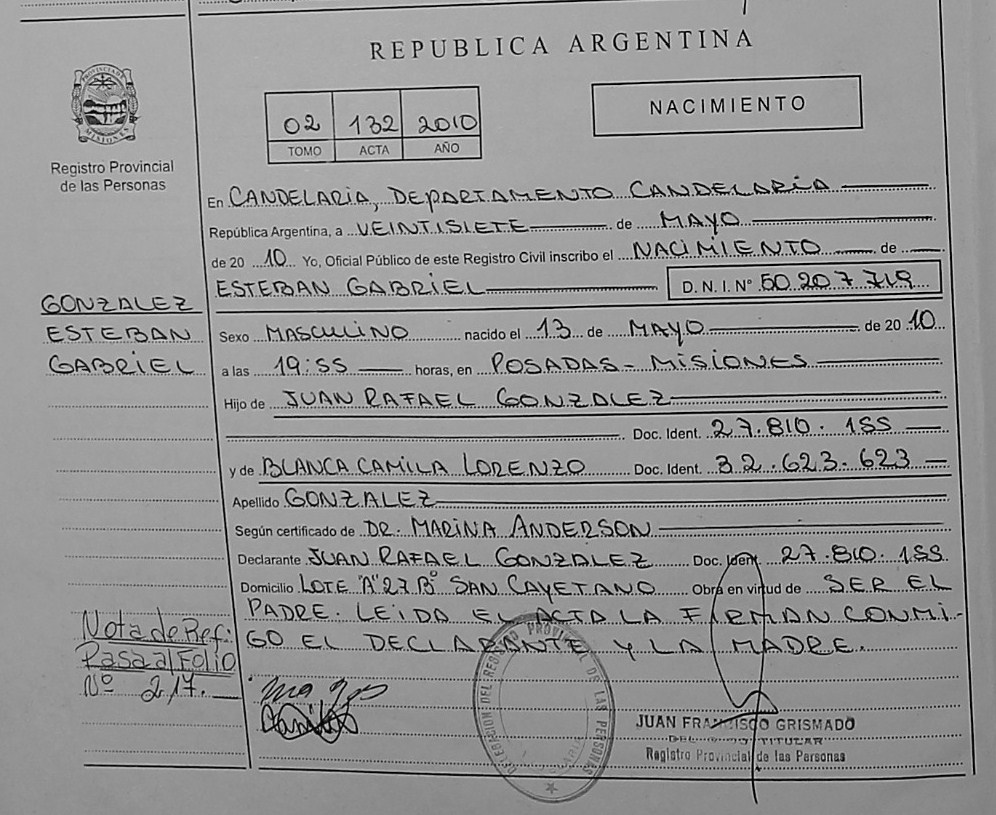 REPUBLICA ARGENTINA
PROVINCIA DE MISIONES
Registro Provincial
de las Personas
02 132 2010
TOMO ACTA AÑO
NACIMIENTO
En CANDELARIA, DEPARTAMENTO CANDELARIA
República Argentina, a VEINTISIETE de MAYO
de 20 10 Yo, Oficial Público de este Registro Civil inscribo el NACIMIENTO de
ESTEBAN GABRIEL D. N. I. Nº 50.207.719
GONZALEZ
ESTEBAN
GABRIEL
Sexo MASCULINO nacido el 13 de MAYO de 20 10
a las 19:55 horas, en POSADAS - MISIONES
Hijo de JUAN RAFAEL GONZALEZ
Doc. Ident. 27.810.155
y de BLANCA CAMILA LORENZO Doc. Ident. 32.623.623
Apellido GONZALEZ
Según certificado de DR. MARINA ANDERSON
Declarante JUAN RAFAEL GONZALEZ Doc. Ident. 27.810.155
Domicilio LOTE "A" 27 Bº SAN CAYETANO Obra en virtud de SER EL
PADRE. LEIDA EL ACTA LA FIRMAN CONMI-
GO EL DECLARANTE Y LA MADRE.
Nota de Ref:
Pasa al Folio
Nº 217.
DELEGACION DEL REGISTRO PROVINCIAL DE LAS PERSONAS
JUAN FRANCISCO GRISMADO
TITULAR
Registro Provincial de las Personas